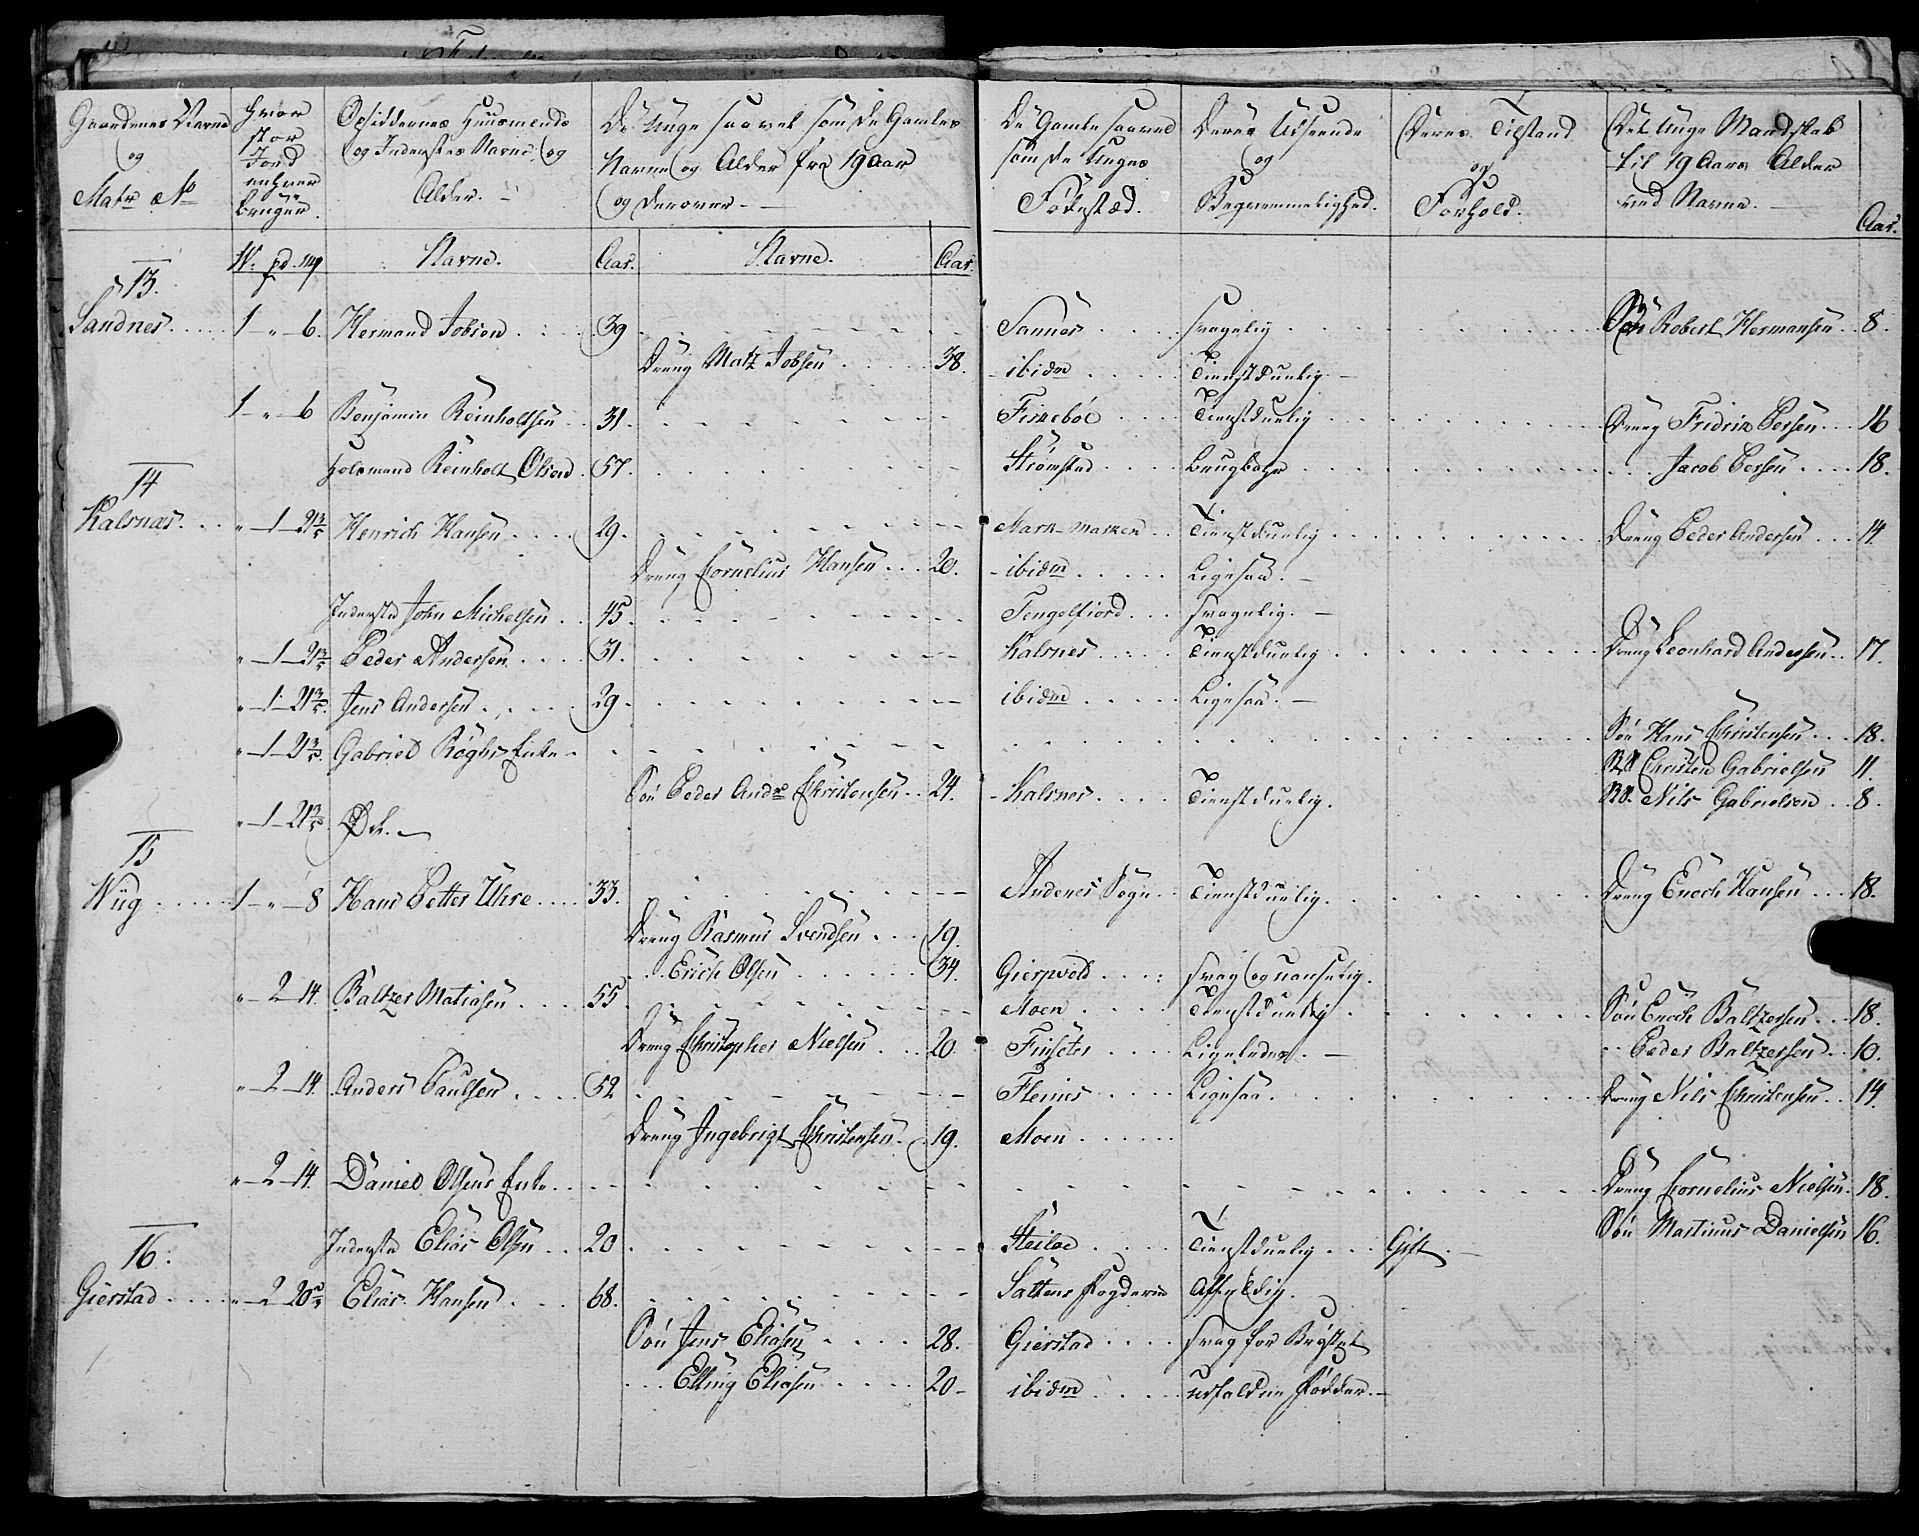 Gaardenes Navne og Matr No
Hvor stor Jord enhver bruger.
Opsiddernes Huusmends og Inderstes Navne og Alder.
De Unge saavel som de Gamles Navne og Alder fra 19 Aar og derover
De Gamle saavel som de Unges Fødestæd.
Deres Udseende og Begvemmelighed.
Deres Tilstand og Forhold.
Det Unge Mandskab til 19 Aars Alder ved Navne.
Aar.
W. pd. mg Navne. Aar. Navne. Aar.
13.
Sandnes 1 - " - 6. Hermand Jobsen 39 Sannes svagelig Søn Robert Hermansen 8.
Dreng Matz Jobsen 38. ibidm Tienstduelig
1 - " - 6 Benjamin Reinholtsen 31. Finneböe Tienstduelig Dreng Fridrik Persen 16
Reinholt Olsen 57. Strömstad Jacob Persen 18.
14
Kalsnæs " - 1 - 21 3/5 Henrich Hansen 29. Mark-Marken Tienstduelig Dreng Peder Andersen 14.
Dreng Cornelius Hansen 20. ibidm Ligesaa.
Inderste John Michelsen 45. Tengelfiord svagelig.
" - 1 - 21 3/5 Peder Andersen 31. Kalsnes Tienstduelig Dreng Leonhard Andersen 17.
" - 1 - 21 3/5 Jens Andersen 29 ibidm Ligesaa.
" - 1 - 21 3/5 Gabriel Röghs Enke Søn Hans Christensen 18.
Christen Gabrielsen 11.
Søn Peder Andr Christensen 24. Kalsnes Tienstduelig. Nils Gabrielsen 8.
" - 1 - 21 3/5 Öde.
15
Wiig 1 - " - 8 Hans Petter Uhre 33. Andenes Sogn Tienstduelig. Dreng Enoch Hansen 18.
Dreng Rasmus Svendsen 19.
Erich Olsen 34. Gierpvold svag og uanselig.
" - 2 - 14. Baltzer Matiasen 55 Moen Tienstduelig Søn Enoch Baltzersen 18.
Dreng Christopher Nielsen 20. Finseter Ligeledes. Peder Baltzersen 10.
" - 2 - 14. Anders Paulsen 52 Fleines Ligesaa. Dreng Nils Christensen 14.
Dreng Ingebrigt Christensen 19. Moen
" - 2 - 14. Daniel Olsens Enke Dreng Cornelius Nielsen 18.
Inderste Elias Olsen 20 Steiloe Tienstduelig Gift. Søn Martinus Danielsen 16.
16.
Gierstad " - 2 20 Elias Hansen 68. Saltens Fogderie Affældig.
Søn Jens Eliasen 28. Gierstad svag for Brystet
Elling Eliasen 20 ibidm udfaldne Fødder.